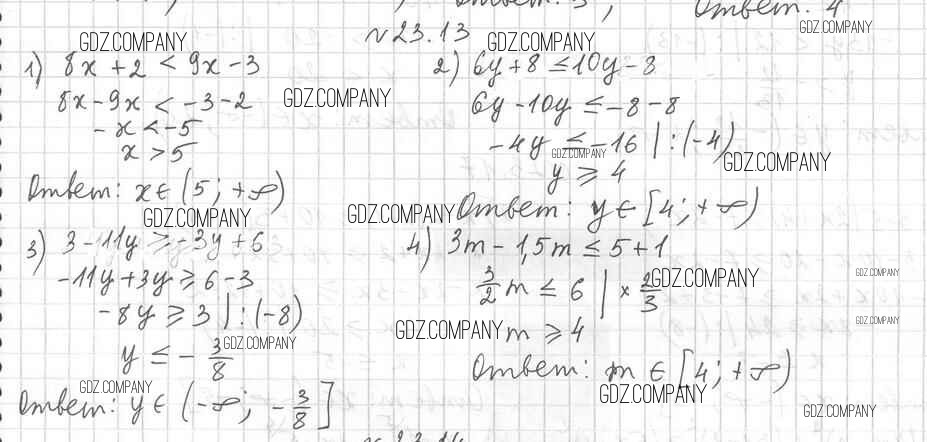 Ответ: 4
GDZ.COMPANY
№23.13
GDZ.COMPANY
GDZ.COMPANY
1) 8x + 2 < 9x - 3
8x - 9x < -3 - 2
GDZ.COMPANY
- x < -5
x > 5
Ответ: x ∈ (5; +∞)
GDZ.COMPANY
2) 6y + 8 ≤ 10y - 8
6y - 10y ≤ -8 - 8
-4y ≤ -16 | : (-4)
GDZ.COMPANY
GDZ.COMPANY
y ≥ 4
GDZ.COMPANY
Ответ: y ∈ [4; +∞)
3) 3 - 11y ≥ -3y + 6
-11y + 3y ≥ 6 - 3
-8y ≥ 3 | : (-8)
y ≤ - 3/8
GDZ.COMPANY
GDZ.COMPANY
Ответ: y ∈ (-∞; - 3/8]
4) 3m - 1,5m ≤ 5 + 1
GDZ.COMPANY
GDZ.COMPANY
3/2 m ≤ 6 | × 2/3
GDZ.COMPANY
GDZ.COMPANY
m ≥ 4
Ответ: m ∈ [4; +∞)
GDZ.COMPANY
GDZ.COMPANY